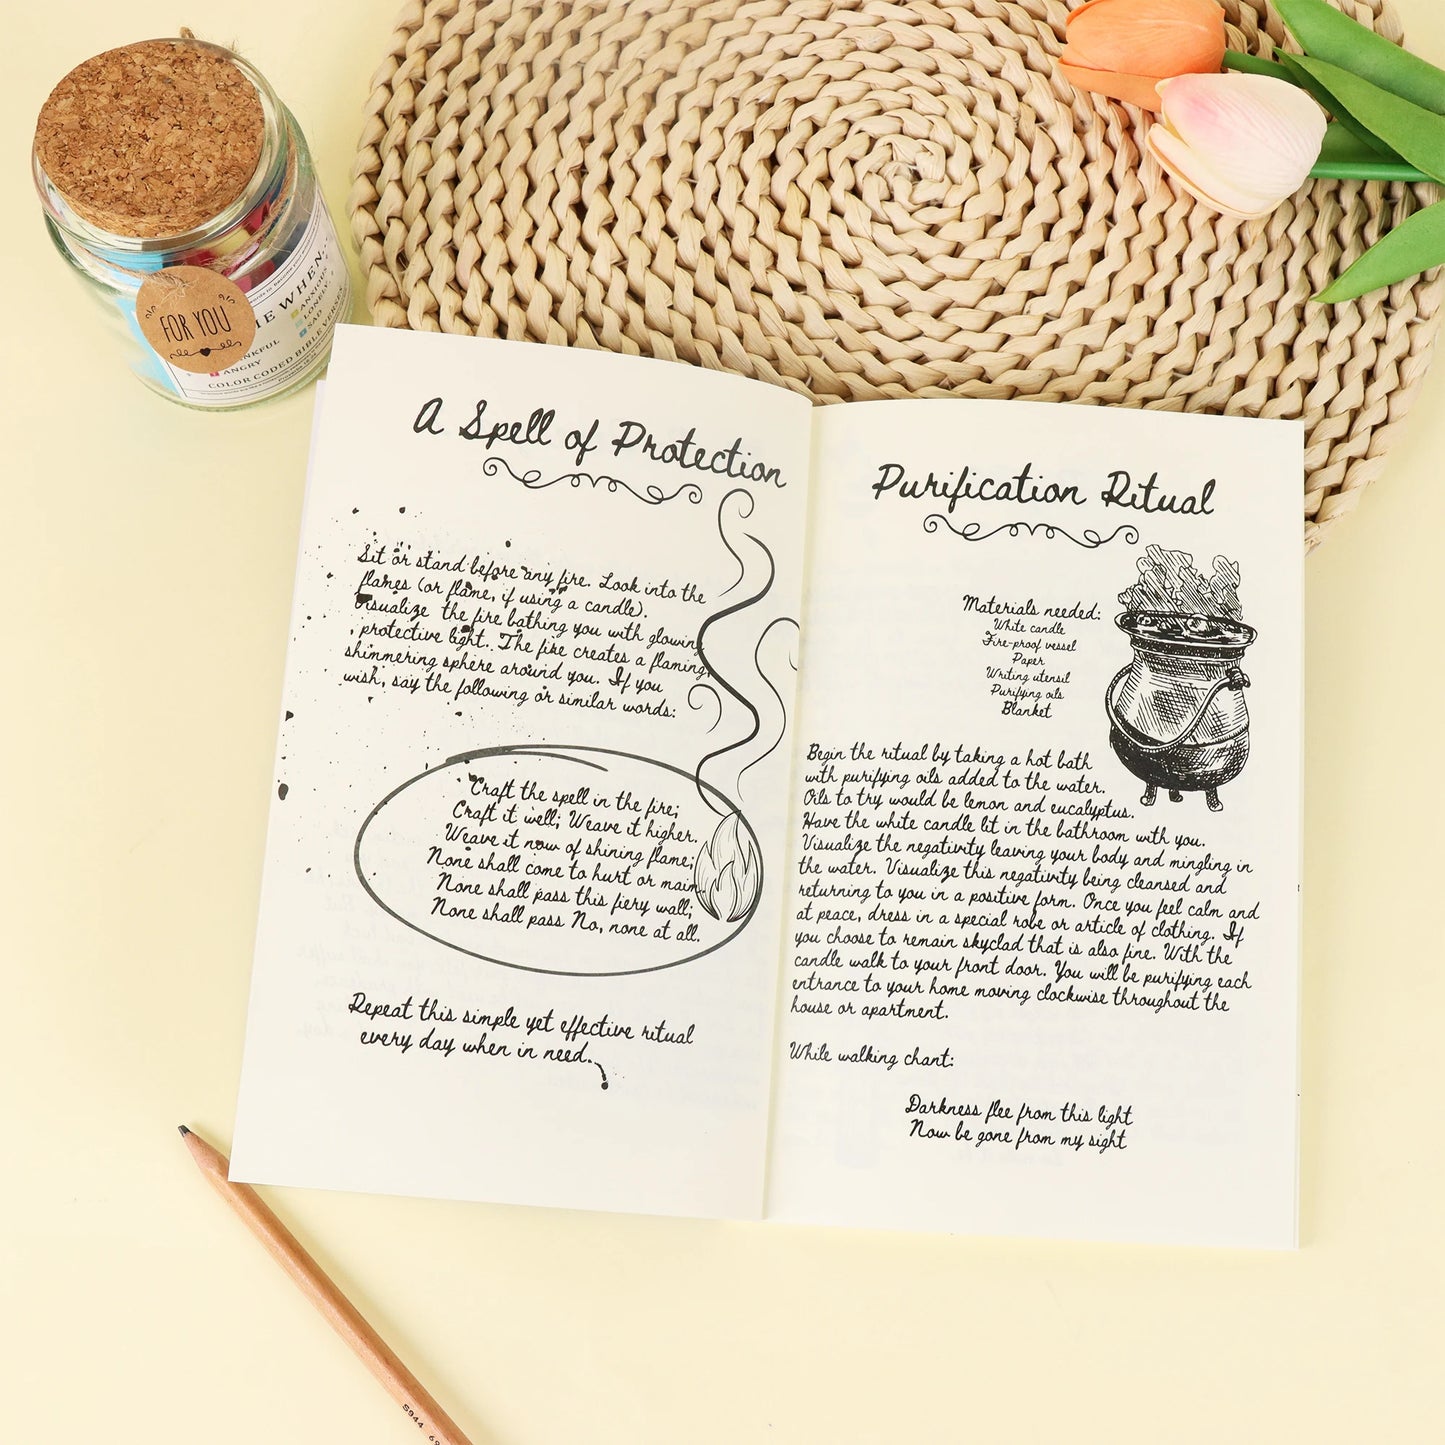 FOR YOU
E WHEN...
ANXIOUS
LONELY
SAD
ANGRY
COLOR CODED BIBLE VERSES
A Spell of Protection
Sit or stand before any fire. Look into the
flames (or flame, if using a candle).
Visualize the fire bathing you with glowing,
protective light. The fire creates a flaming,
shimmering sphere around you. If you
wish, say the following or similar words:
Craft the spell in the fire;
Craft it well; Weave it higher.
Weave it now of shining flame;
None shall come to hurt or maim.
None shall pass this fiery wall;
None shall pass No, none at all.
Repeat this simple yet effective ritual
every day when in need.
Purification Ritual
Materials needed:
White candle
Fire-proof vessel
Paper
Writing utensil
Purifying oils
Blanket
Begin the ritual by taking a hot bath
with purifying oils added to the water.
Oils to try would be lemon and eucalyptus.
Have the white candle lit in the bathroom with you.
Visualize the negativity leaving your body and mingling in
the water. Visualize this negativity being cleansed and
returning to you in a positive form. Once you feel calm and
at peace, dress in a special robe or article of clothing. If
you choose to remain skyclad that is also fine. With the
candle walk to your front door. You will be purifying each
entrance to your home moving clockwise throughout the
house or apartment.
While walking chant:
Darkness flee from this light
Now be gone from my sight
S944